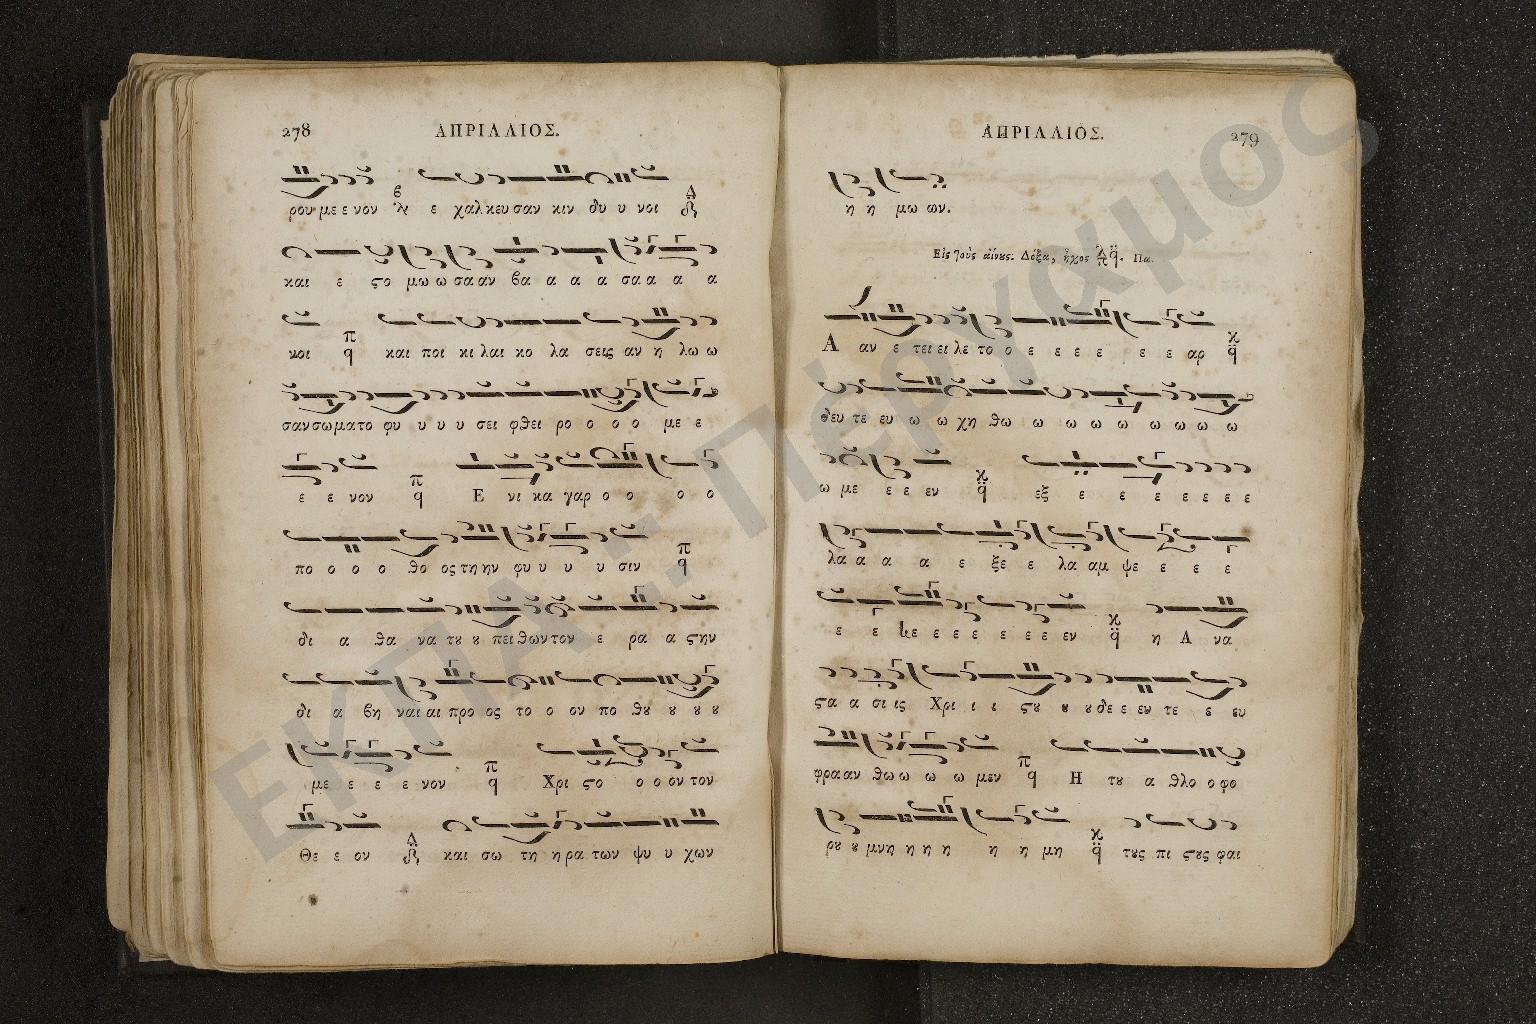 278 ΑΠΡΙΛΛΙΟΣ.
ρου με ε νον ε χαλ κευ σαν κιν δυ υ νοι
και ε ϛο μω ω σα αν βα α α α σα α α α
κοι π q και ποι κι λαι κο λα σεις αν η λω ω
σαν σω μα το φυ υ υ υ σει φθει ρο ο ο ο με ε
ε ε νον π q Ε νι κα γαρ ο ο ο ο
πο ο ο ο θο ος τη ην φυ υ υ υ σιν π q
δι α θα να τȣ ȣ πει θων τον ε ρα α ϛην
δι α βη ναι αι προ ος το ο ον πο θȣ ȣ ȣ ȣ
με ε ε ε νον π q Χρι ϛο ο ο ον τον
Θε ε ον και σω τη η ρα των ψυ υ χων
ΑΠΡΙΛΛΙΟΣ. 279
η η μω ων.
Εἰς τοὺς αἴνȣς. Δόξα, ἦχος Πα.
Α αν ε τει ει λε το ο ε ε ε ε ε ε αρ
δευ τε ευ ω ω χη θω ω ω ω ω ω ω ω ω
ω με ε ε εν εξ ε ε ε ε ε ε ε
λα α α α ε ξε ε λα αμ ψε ε ε ε
ε ε ε ε ε ε ε ε εν η Α να
ϛα α σι ις Χρι ι ι ϛȣ ȣ ȣ δε ε εν τε ε ευ
φρα αν θω ω ω ω μεν π q Η τȣ α θλο ο φο
ρȣ ȣ μνη η η η η η μη τȣς πι ϛȣς φαι
ΕΚΠΑ: Πέργαμος